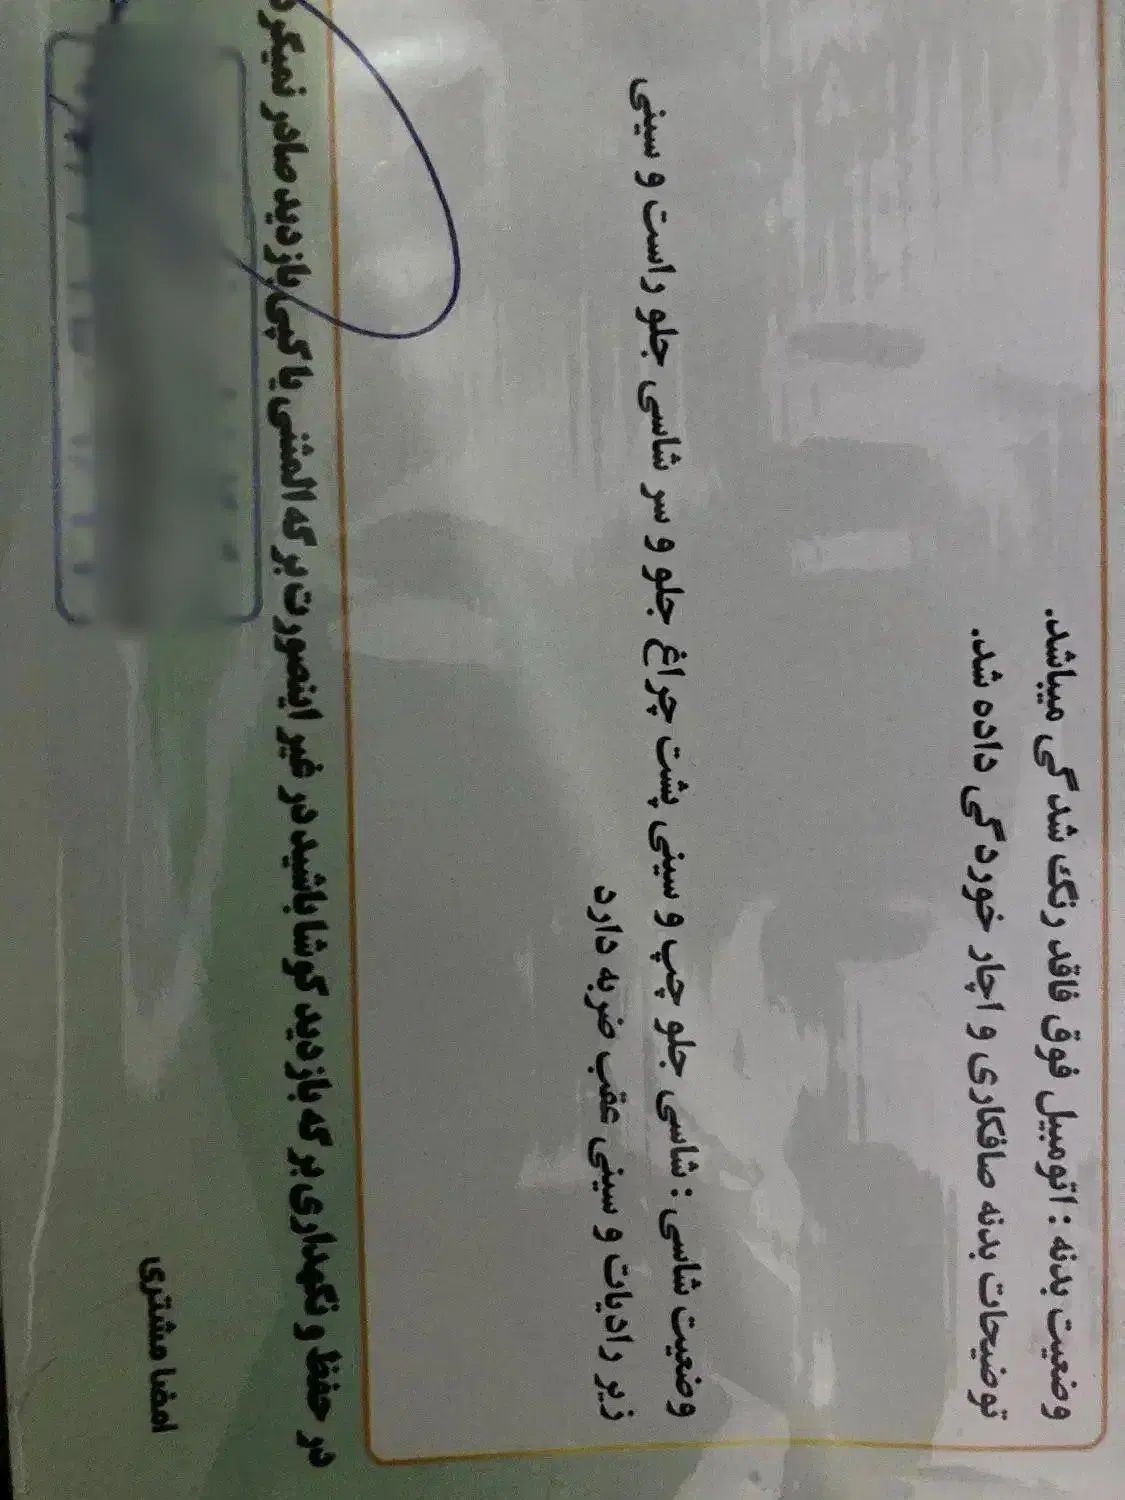 وضعیت بدنه : اتومبیل فوق فاقد رنگ شدگی میباشد.
توضیحات بدنه صافکاری و اچار خوردگی داده شد.
وضعیت شاسی : شاسی جلو چپ و سینی پشت چراغ جلو و سر شاسی جلو راست و سینی
زیر رادیات و سینی عقب ضربه دارد
در حفظ و نگهداری برگه بازدید کوشا باشید در غیر اینصورت برگه المثنی یا کپی بازدید صادر نمیگرد
امضا مشتری